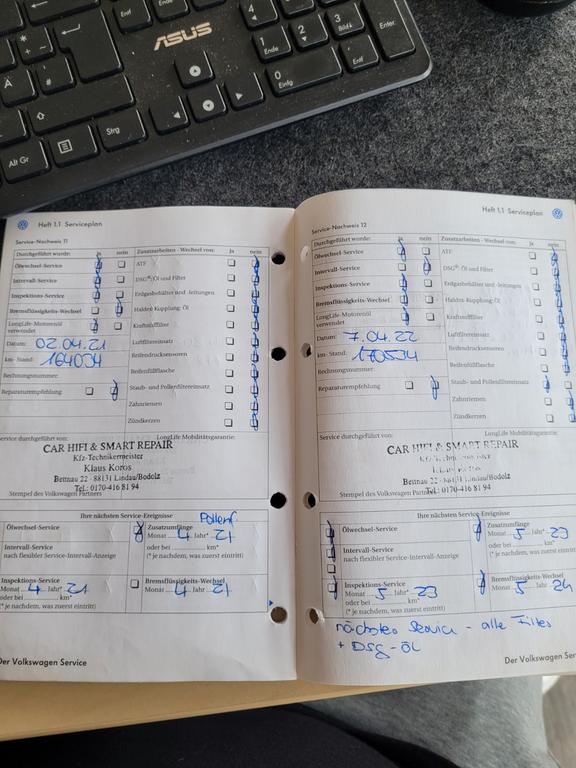 ASUS
4
5
6
1
Ende
2
3
Bild↓
Enter
0
Einfg
Entf
Ä
Strg
Alt Gr
Heft 1.1 Serviceplan
Service-Nachweis 11
Durchgeführt wurde: ja nein
Ölwechsel-Service
Intervall-Service
Inspektions-Service
Bremsflüssigkeits-Wechsel
LongLife-Motorenöl
verwendet
Datum: 02.04.21
km-Stand: 164034
Rechnungsnummer:
Reparaturempfehlung
Zusatzarbeiten - Wechsel von: ja nein
ATF
DSG®: Öl und Filter
Erdgasbehälter und -leitungen
Haldex Kupplung: Öl
Kraftstofffilter
Luftfiltereinsatz
Reifendrucksensoren
Reifenfüllflasche
Staub- und Pollenfiltereinsatz
Zahnriemen
Zündkerzen
Service durchgeführt von: LongLife Mobilitätsgarantie:
CAR HIFI & SMART REPAIR
Kfz-Technikermeister
Klaus Koros
Bettnau 22 · 88131 Lindau/Bodolz
Tel.: 0170-416 81 94
Stempel des Volkswagen Partners
Ihre nächsten Service-Ereignisse
Ölwechsel-Service
Intervall-Service
nach flexibler Service-Intervall-Anzeige
Pollenf.
Zusatzumfänge
Monat 4 Jahr* 21
oder bei km*
(* je nachdem, was zuerst eintritt)
Inspektions-Service
Monat 4 Jahr* 21
oder bei km*
(* je nachdem, was zuerst eintritt)
Bremsflüssigkeits-Wechsel
Monat 4 Jahr 21
Der Volkswagen Service
Heft 1.1 Serviceplan
Service-Nachweis 12
Durchgeführt wurde: ja nein
Ölwechsel-Service
Intervall-Service
Inspektions-Service
Bremsflüssigkeits-Wechsel
LongLife-Motorenöl
verwendet
Datum: 7.04.22
km-Stand: 170534
Rechnungsnummer:
Reparaturempfehlung
Zusatzarbeiten - Wechsel von: ja nein
ATF
DSG®: Öl und Filter
Erdgasbehälter und -leitungen
Haldex Kupplung: Öl
Kraftstofffilter
Luftfiltereinsatz
Reifendrucksensoren
Reifenfüllflasche
Staub- und Pollenfiltereinsatz
Zahnriemen
Zündkerzen
Service durchgeführt von: LongLife Mobilitätsgarantie:
CAR HIFI & SMART REPAIR
Bettnau 22 · 88131 Lindau/Bodolz
Tel.: 0170-416 81 94
Stempel des Volkswagen Partners
Ihre nächsten Service-Ereignisse
Ölwechsel-Service
Intervall-Service
nach flexibler Service-Intervall-Anzeige
Zusatzumfänge
Monat 5 Jahr* 23
oder bei km*
(* je nachdem, was zuerst eintritt)
Inspektions-Service
Monat 5 Jahr* 23
oder bei km*
(* je nachdem, was zuerst eintritt)
Bremsflüssigkeits-Wechsel
Monat 5 Jahr 24
nächster Service - alle Filter
+ DSG-Öl
Der Volkswagen Service